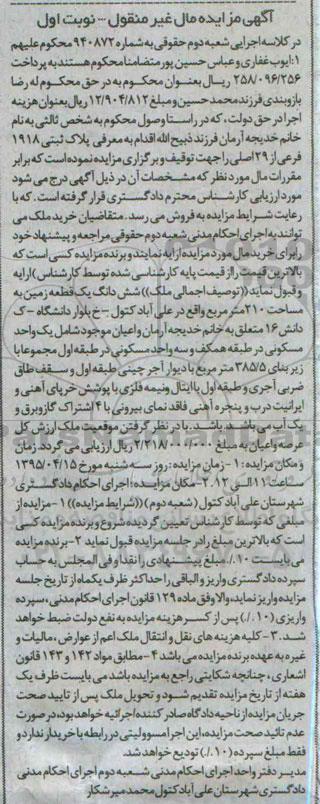 آگهی مزایده مال غیر منقول -- نوبت اول
در کلاسه اجرایی شعبه دوم حقوقی به شماره ۹۴۰۸۷۲ محکوم علیهم
۱: ایوب غفاری و عباس حسین پور متضامنا محکوم هستند به پرداخت
۲۵۸/۰۹۶/۲۵۶ ریال بعنوان محکوم به در حق محکوم له رضا
بازوبندی فرزند محمدحسین و مبلغ ۱۲/۹۰۴/۸۱۲ ریال بعنوان هزینه
اجرا در حق دولت، که در راستا وصول محکوم به شخص ثالثی به نام
خانم خدیجه آرمان فرزند ذبیح الله اقدام به معرفی پلاک ثبتی ۱۹۱۸
فرعی از ۲۹ اصلی را جهت توقیف و برگزاری مزایده نموده است که برابر
مقررات مال مورد نظر که مشخصات آن در ذیل آگهی درج می شود
مورد ارزیابی کارشناس محترم دادگستری قرار گرفته است. که با
رعایت شرایط مزایده به فروش می رسد. متقاضیان خرید ملک می
توانند به اجرای احکام مدنی شعبه دوم حقوقی مراجعه و پیشنهاد خود
را برای خرید مال مورد مزایده ارایه نمایند و برنده مزایده کسی است که
بالاترین قیمت را از قیمت پایه کارشناسی شده توسط کارساس) ارایه
و قبول نماید ((توصیف اجمالی ملک)) شش دانگ یک قطعه زمین به
مساحت ۲۱۰ متر مربع واقع در علی آباد کتول -خ بلوار دانشگاه -ک
دانش ۱۶ متعلق به خانم خدیجه آرمان و اعیان موجود شامل یک واحد
مسکونی در طبقه همکف و سه واحد مسکونی در طبقه اول مجموعا با
زیر بنای ۳۸۵/۵ متر مربع با دیوار آجر چینی طبقه اول و سقف طاق
ضربی آجری و طبقه اول با ایتال ونیمه فلزی با پوشش خرپای آهنی و
ایرانیت درب و پنجره آهنی فاقد نمای بیرونی با ۴ اشتراک گاز و برق و
یک آب می باشد. باشد. با در نظر گرفتن موقعیت ملک ارزش کل
عرصه و اعیان به مبلغ ۲/۲۱۸۰۰۰/۰۰۰ ریال ارزیابی می گردد. زمان
و مکان مزایده: ۱- زمان مزایده: روز سه شنبه مورخ ۱۳۹۵/۰۴/۱۵
ساعت ۱۱ الی ۱۲. ۲- مکان مزایده: اجرای احکام دادگستری
شهرستان علی آباد کتول (شعبه دوم) ((شرایط مزایده)) ۱- مزایده از
مبلغی که توسط کارشناس تعیین گردیده شروع و برنده مزایده کسی
است که بالاترین مبلغ را در جلسه مزایده قبول نماید ۲- برنده مزایده
می بایست ۱۰./. مبلغ پیشنهادی را نقدا و فی المجلس به حساب
سپرده دادگستری واریز و الباقی را حداکثر ظرف یکماه از تاریخ جلسه
مزایده واریز نماید، والا وفق ماده ۱۲۹ قانون اجرای احکام مدنی، سپرده
واریزی (۱۰./.) پس از کسر هزینه مزایده به نفع دولت ضبط خواهد
شد. ۳- کلیه هزینه های نقل و انتقال ملک اعم از عوارض، مالیات و
غیره به عهده برنده مزایده می باشد ۴- مطابق مواد ۱۴۲ و ۱۴۳ قانون
اشعاری، چنانچه شکایتی راجع به مزایده باشد می بایست ظرف یک
هفته از تاریخ مزایده تقدیم شود و تحویل ملک پس از تایید صحت
جریان مزایده از ناحیه دادگاه صادر کننده اجرائیه خواهد بود، در صورت
عدم تائید صحت مزایده، این اجرا مسوولیتی در رابطه با خریدار ندارد و
فقط مبلغ سپرده (۱۰./.) تودیع خواهد شد.
مدیر دفتر واحد اجرای احکام مدنی شعبه دوم اجرای احکام مدنی
دادگستری شهرستان علی آباد کتول محمد میر شکار